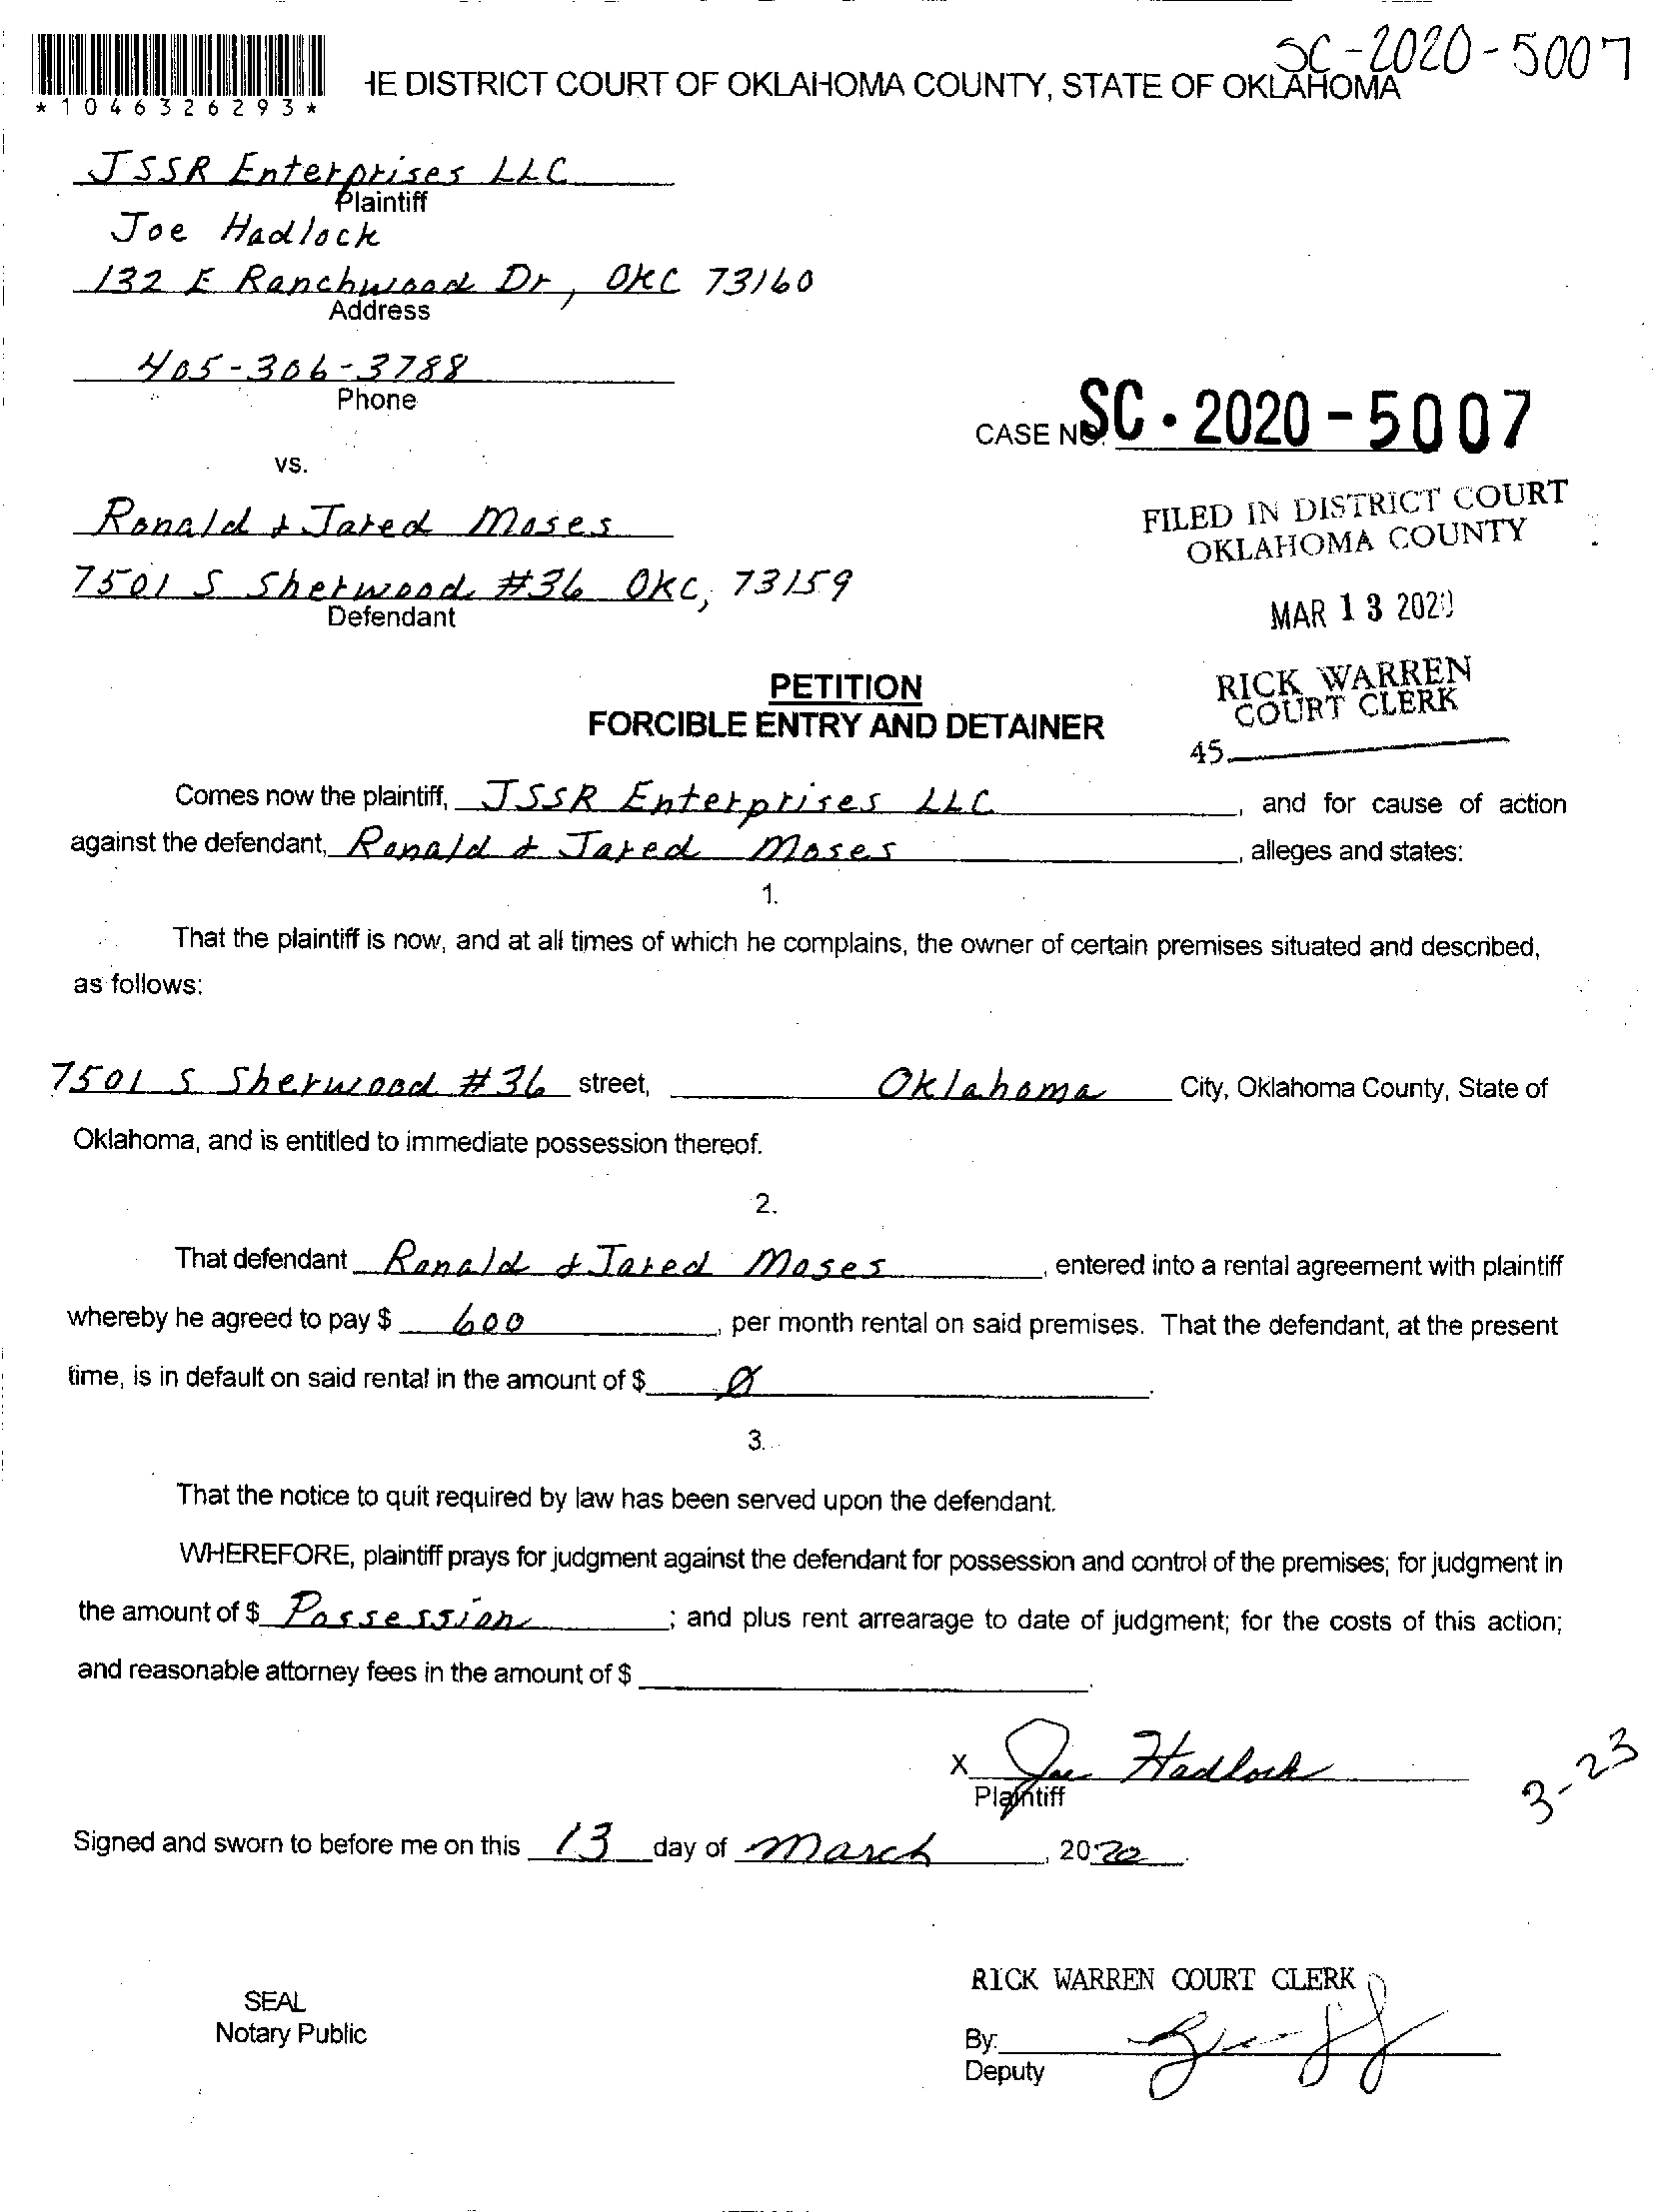 SC-2020-5007
*1046326293*
HE DISTRICT COURT OF OKLAHOMA COUNTY, STATE OF OKLAHOMA
JSSR Enterprises LLC
Plaintiff
Joe Hadlock
132 E Ranchwood Dr, OKC 73160
Address
405-306-3788
Phone
CASE NO. SC-2020-5007
vs.
Ronald & Jared Moses
7501 S Sherwood #36 OKC, 73159
Defendant
FILED IN DISTRICT COURT
OKLAHOMA COUNTY
MAR 13 2020
RICK WARREN
COURT CLERK
45
PETITION
FORCIBLE ENTRY AND DETAINER
Comes now the plaintiff, JSSR Enterprises LLC, and for cause of action
against the defendant, Ronald & Jared Moses, alleges and states:
1.
That the plaintiff is now, and at all times of which he complains, the owner of certain premises situated and described,
as follows:
7501 S Sherwood #36 street, Oklahoma City, Oklahoma County, State of
Oklahoma, and is entitled to immediate possession thereof.
2.
That defendant Ronald & Jared Moses, entered into a rental agreement with plaintiff
whereby he agreed to pay $ 600, per month rental on said premises. That the defendant, at the present
time, is in default on said rental in the amount of $ Ø.
3.
That the notice to quit required by law has been served upon the defendant.
WHEREFORE, plaintiff prays for judgment against the defendant for possession and control of the premises; for judgment in
the amount of $ Possession; and plus rent arrearage to date of judgment; for the costs of this action;
and reasonable attorney fees in the amount of $ .
X Joe Hadlock
Plaintiff
3-23
Signed and sworn to before me on this 13 day of March, 2020.
SEAL
Notary Public
RICK WARREN COURT CLERK
By:
Deputy